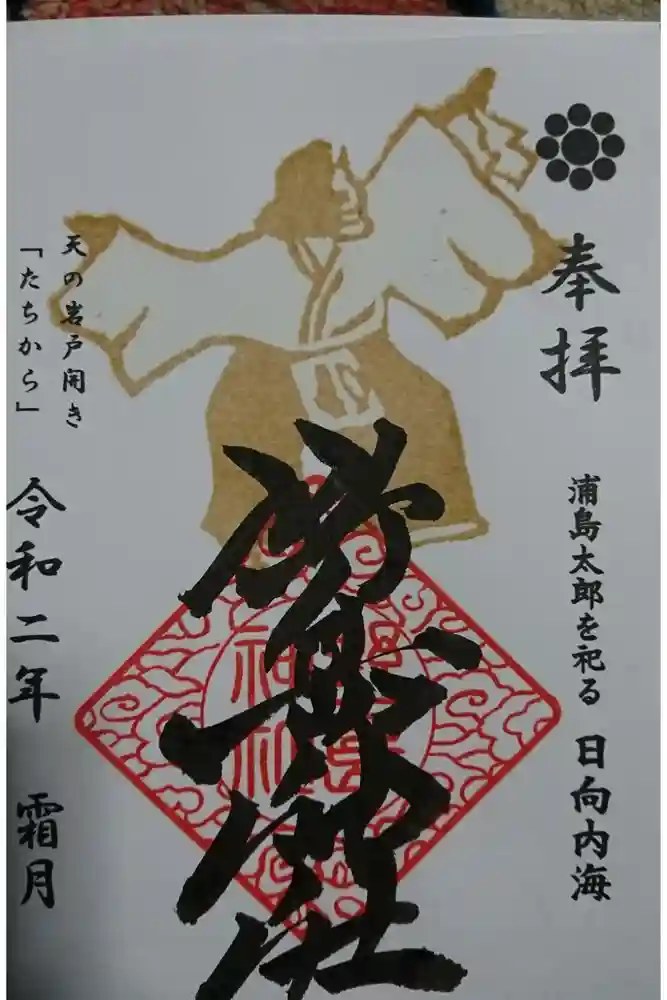 奉拝
浦島太郎を祀る 日向内海
野島神社
天の岩戸開き
「たちから」
令和二年 霜月